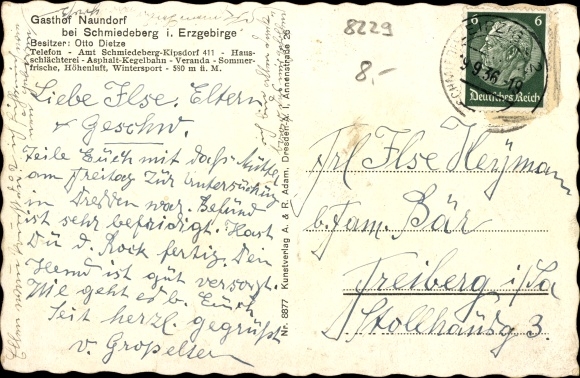 Gasthof Naundorf
bei Schmiedeberg i. Erzgebirge
Besitzer: Otto Dietze
Telefon - Amt Schmiedeberg-Kipsdorf 411 - Haus-
schlächterei - Asphalt-Kegelbahn - Veranda - Sommer-
frische, Höhenluft, Wintersport - 580 m ü. M.
Liebe Ilse. Eltern
& Geschw.
Teile Euch mit daß Muttel
am Freitag zur Untersuchung
in Dresden war. Befund
ist sehr befriedigt. Hast
Du d. Rock fertig. Dein
Hemd ist gut versorgt.
Wie geht es b. Euch
Seit herzl. gegrüßt
v. Großeltern
Nr. 8877 Kunstverlag A. & R. Adam, Dresden-A. 1, Annenstraße 26
8229
8.-
6 6
Deutsches Reich
9.9.36
Frl Ilse Heymann
b. Fam. Bär
Freiberg i/Sa
Stollnhausg 3.